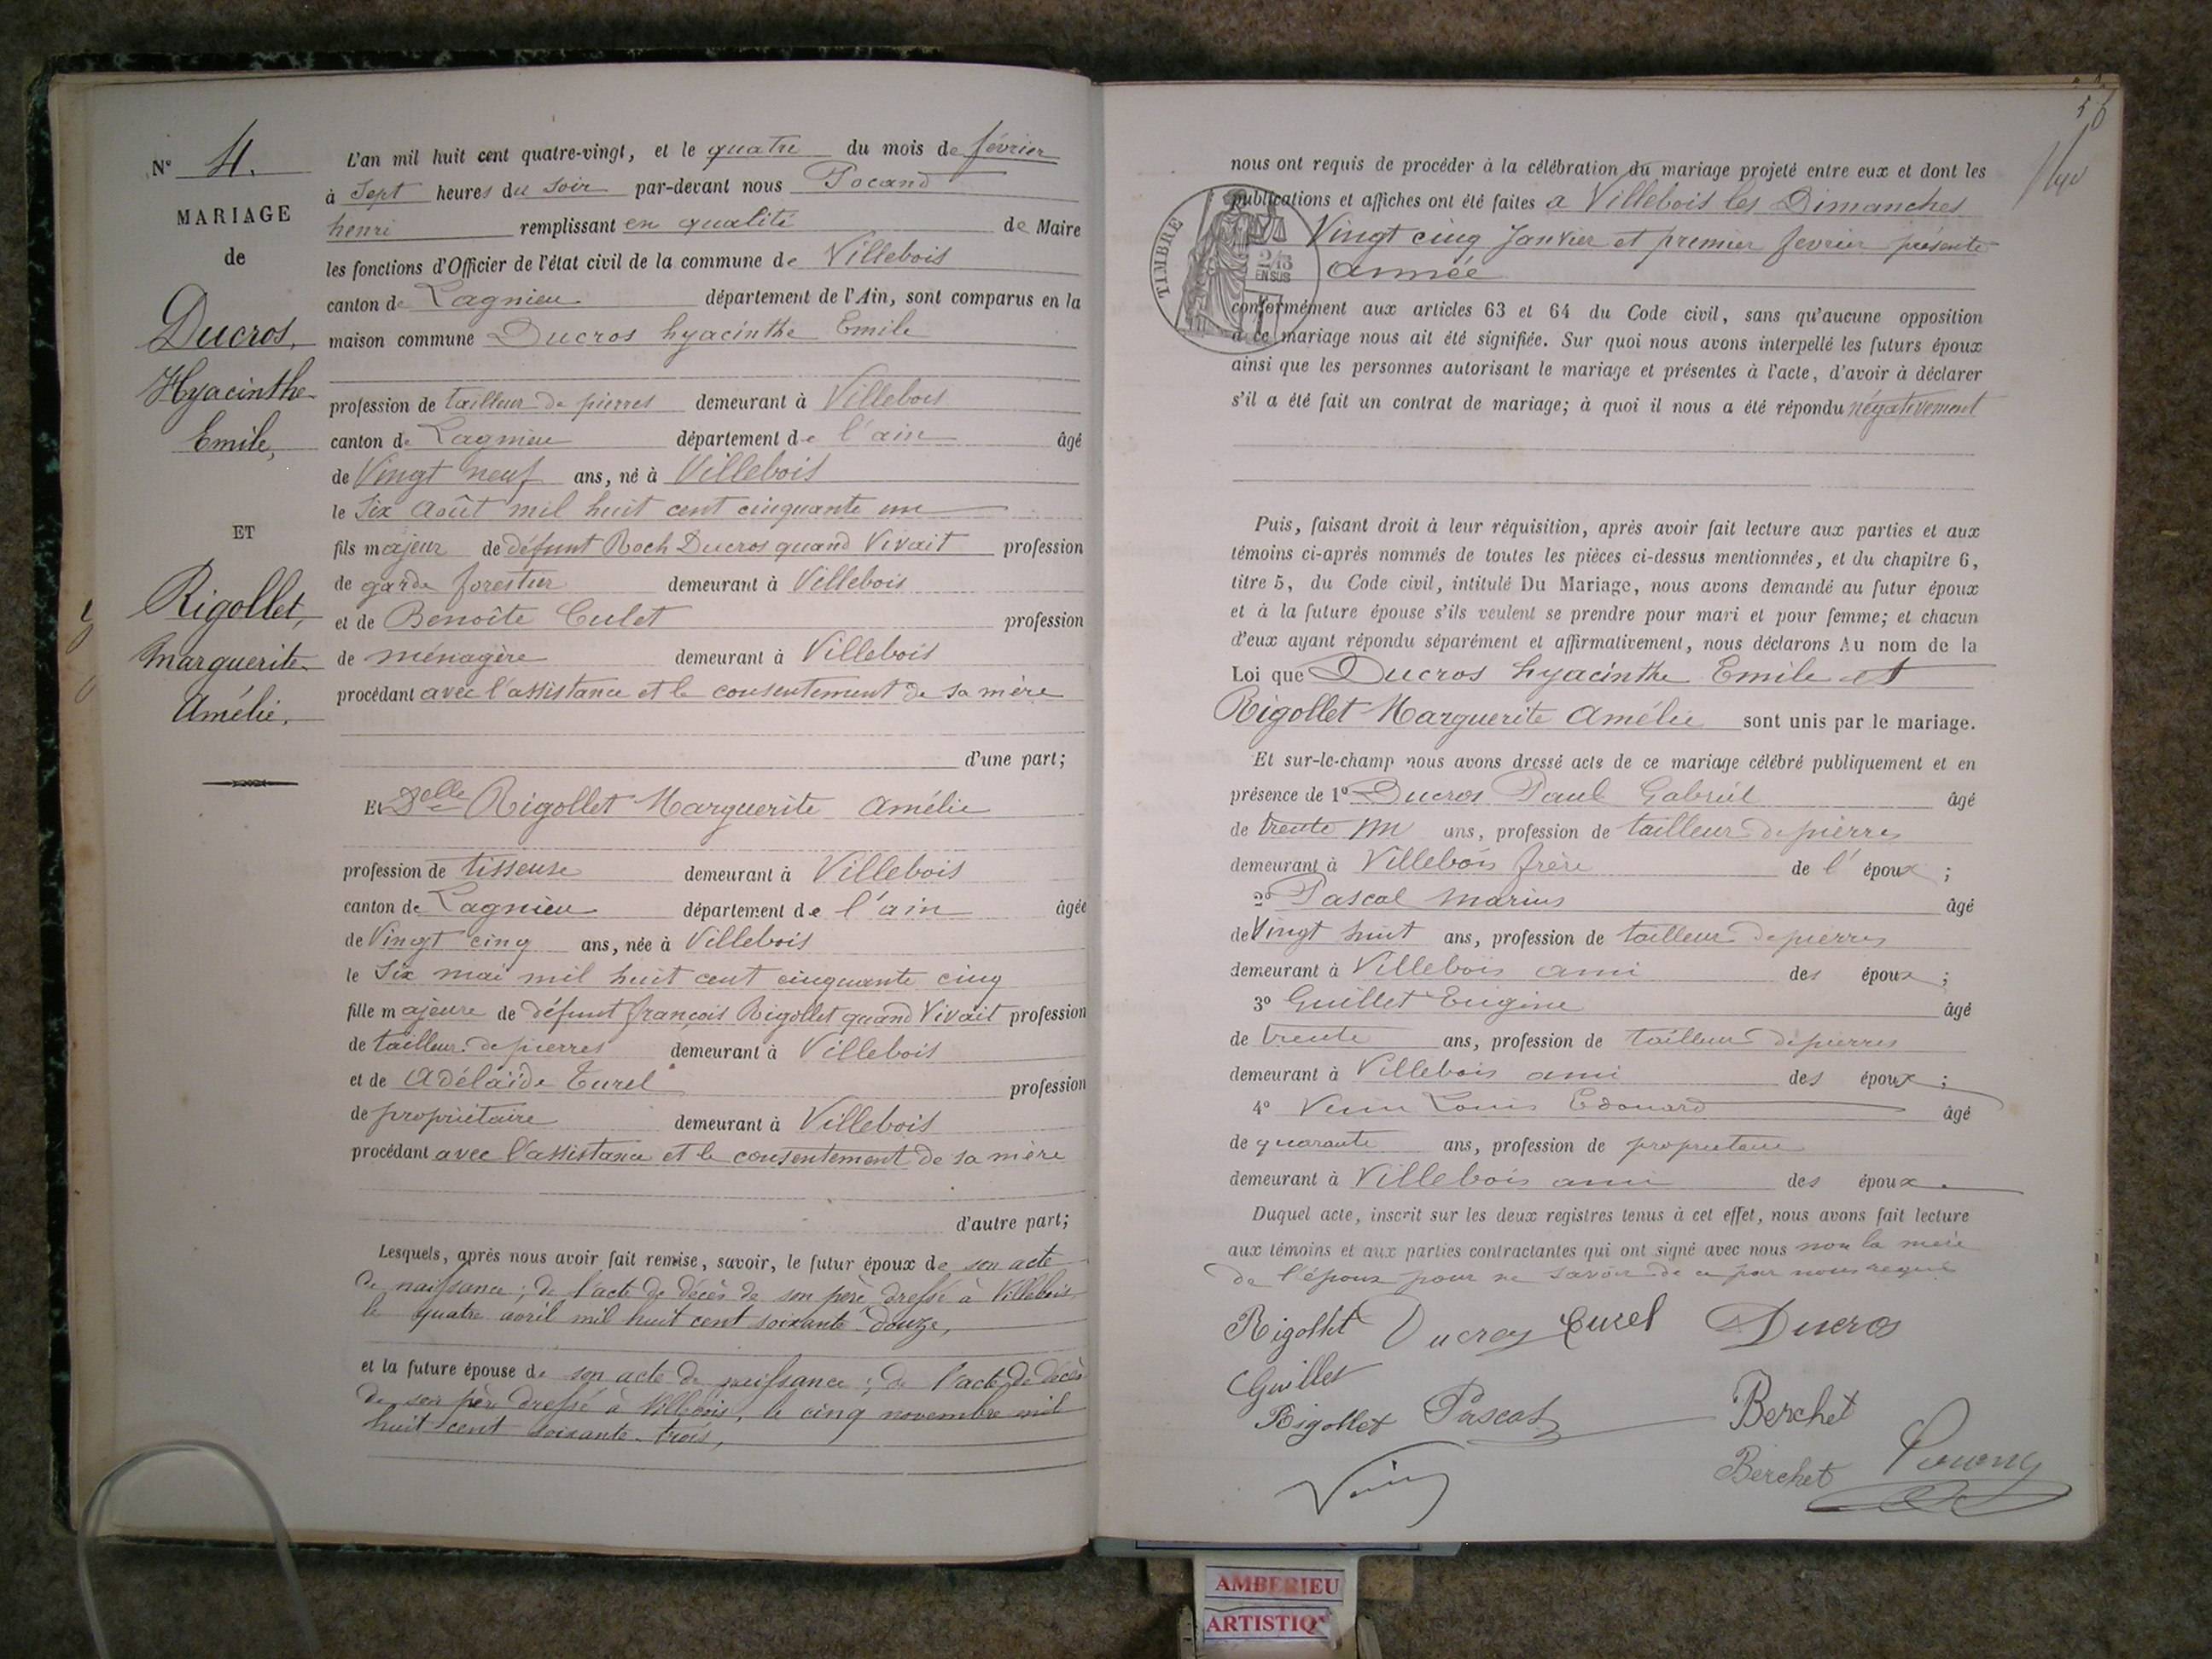 N° 4.
MARIAGE
de
Ducros,
Hyacinthe
Emile,
ET
Rigollet,
Marguerite
Amélie,
L'an mil huit cent quatre-vingt, et le quatre du mois de février
à Sept heures du soir par-devant nous Pocand
henri remplissant en qualité de Maire
les fonctions d'Officier de l'état civil de la commune de Villebois
canton de Lagnieu département de l'Ain, sont comparus en la
maison commune Ducros hyacinthe Emile
profession de tailleur de pierres demeurant à Villebois
canton de Lagnieu département de l'ain âgé
de Vingt neuf ans, né à Villebois
le Six Août mil huit cent cinquante un
fils majeur de défunt Roch Ducros quand Vivait profession
de garde forestier demeurant à Villebois
et de Benoîte Culet profession
de ménagère demeurant à Villebois
procédant avec l'assistance et le consentement de sa mère
d'une part;
Et Delle Rigollet Marguerite Amélie
profession de tisseuse demeurant à Villebois
canton de Lagnieu département de l'ain âgée
de Vingt cinq ans, née à Villebois
le Six mai mil huit cent cinquante cinq
fille majeure de défunt françois Rigollet quand Vivait profession
de tailleur de pierres demeurant à Villebois
et de Adélaïde Curel profession
de propriétaire demeurant à Villebois
procédant avec l'assistance et le consentement de sa mère
d'autre part;
Lesquels, après nous avoir fait remise, savoir, le futur époux de son acte
de naissance; de l'acte de décès de son père dressé à Villebois
le quatre avril mil huit cent soixante-douze,
et la future épouse de son acte de naissance; de l'acte de décès
de son père dressé à Villebois, le cinq novembre mil
huit cent soixante-trois,
56
nous ont requis de procéder à la célébration du mariage projeté entre eux et dont les
publications et affiches ont été faites a Villebois les Dimanches
Vingt cinq Janvier et premier fevrier présente
année
TIMBRE
EN SUS
conformément aux articles 63 et 64 du Code civil, sans qu'aucune opposition
à ce mariage nous ait été signifiée. Sur quoi nous avons interpellé les futurs époux
ainsi que les personnes autorisant le mariage et présentes à l'acte, d'avoir à déclarer
s'il a été fait un contrat de mariage; à quoi il nous a été répondu négativement
Puis, faisant droit à leur réquisition, après avoir fait lecture aux parties et aux
témoins ci-après nommés de toutes les pièces ci-dessus mentionnées, et du chapitre 6,
titre 5, du Code civil, intitulé Du Mariage, nous avons demandé au futur époux
et à la future épouse s'ils veulent se prendre pour mari et pour femme; et chacun
d'eux ayant répondu séparément et affirmativement, nous déclarons Au nom de la
Loi que Ducros hyacinthe Emile et
Rigollet Marguerite Amélie sont unis par le mariage.
Et sur-le-champ nous avons dressé acte de ce mariage célébré publiquement et en
présence de 1° Ducros Paul Gabriel âgé
de trente un ans, profession de tailleur de pierres
demeurant à Villebois frère de l' époux ;
2° Pascal marius âgé
de Vingt huit ans, profession de tailleur de pierres
demeurant à Villebois ami des époux ;
3° Guillet Eugène âgé
de trente ans, profession de tailleur de pierres
demeurant à Villebois ami des époux ;
4° Louis Edouard âgé
de quarante ans, profession de propriétaire
demeurant à Villebois ami des époux.
Duquel acte, inscrit sur les deux registres tenus à cet effet, nous avons fait lecture
aux témoins et aux parties contractantes qui ont signé avec nous non la mère
de l'époux pour ne savoir de ce par nous requise
Rigollet Ducros Curel Ducros
Guillet
Rigollet Pascal Berchet
Berchet
AMBERIEU
ARTISTIQ